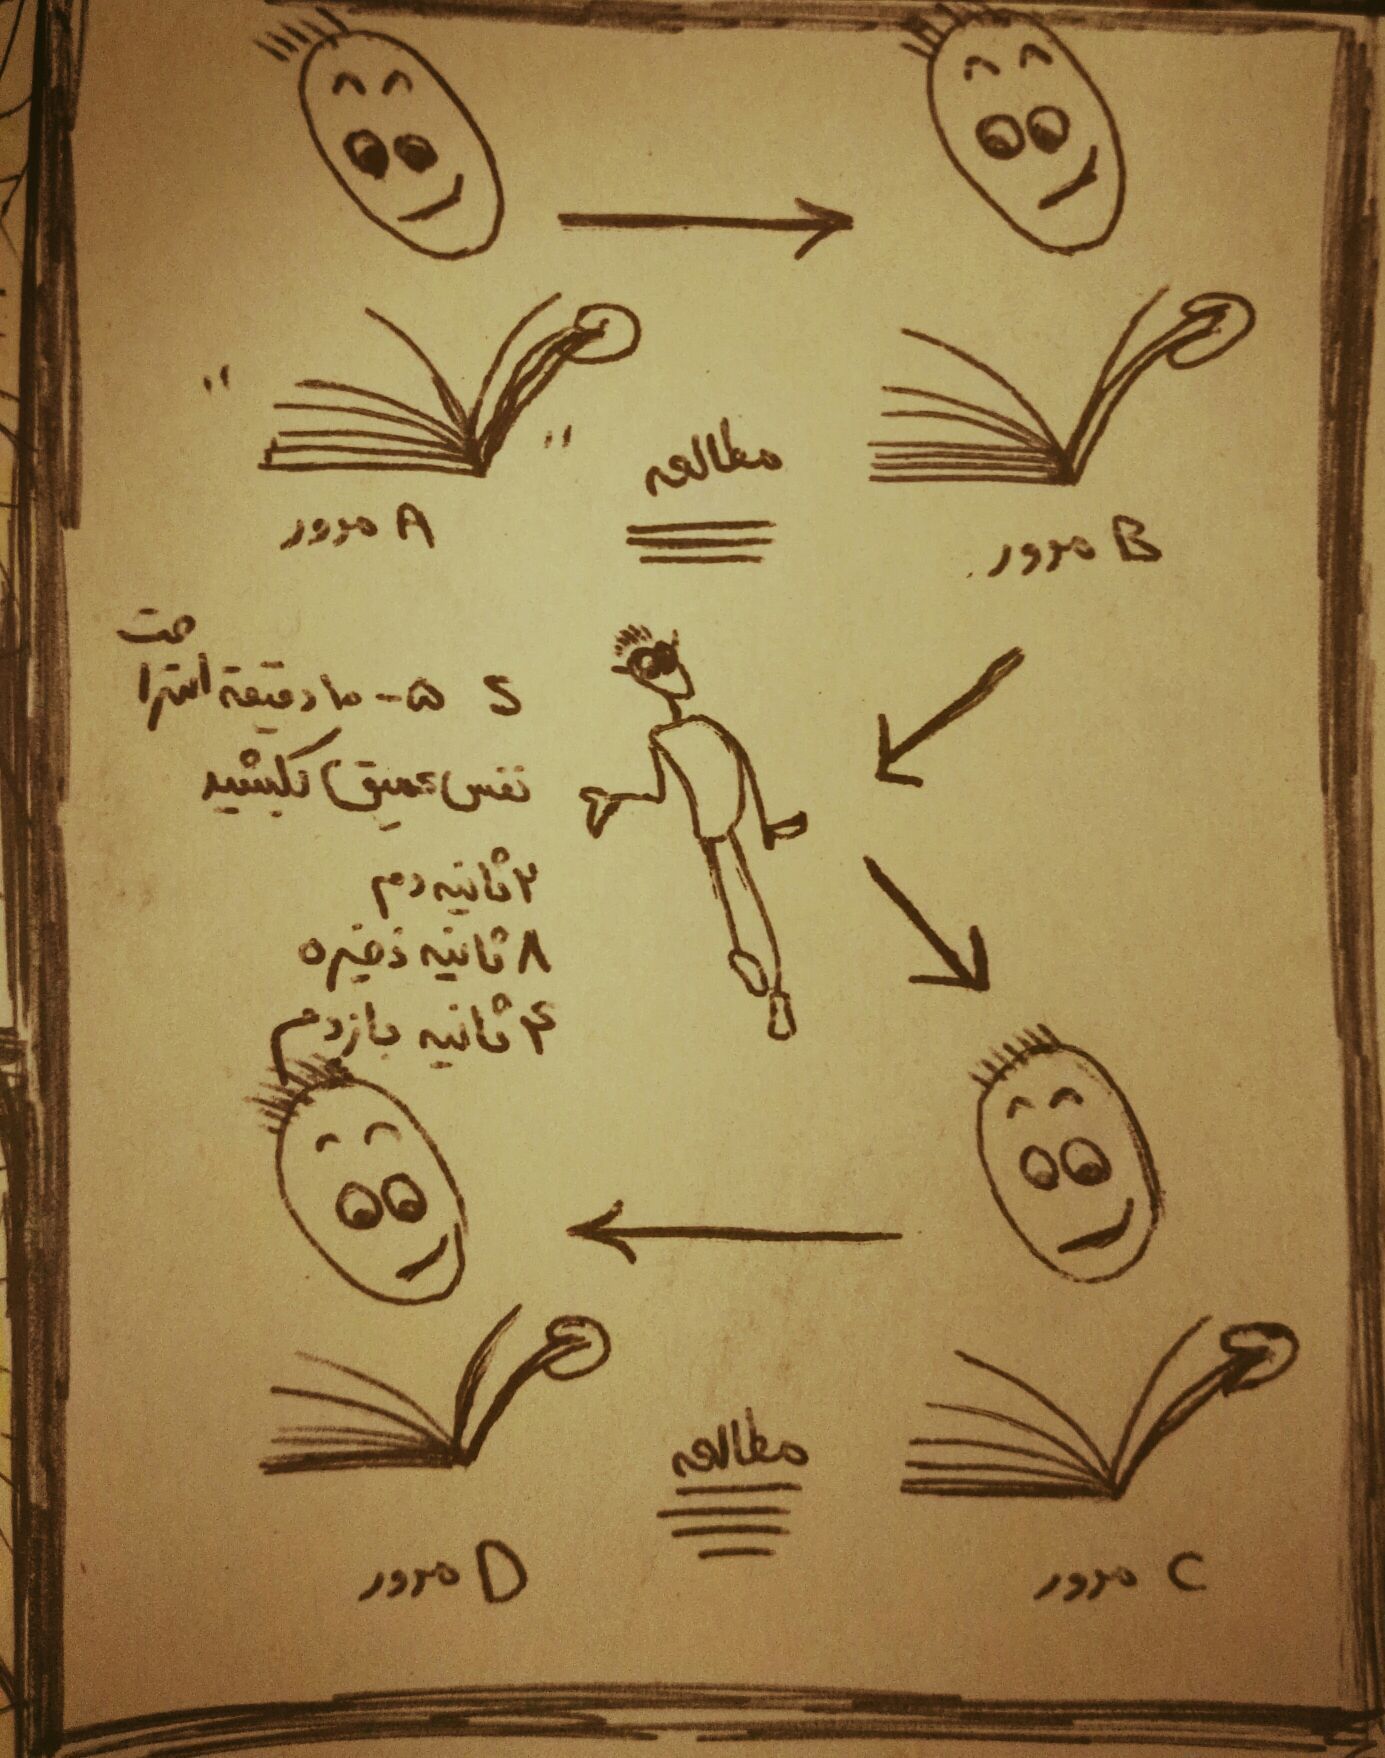 مطالعه
مرور A
مرور B
۵-۱۰ دقیقه استراحت
نفس عمیق بکشید
۲ ثانیه دم
۸ ثانیه ذخیره
۴ ثانیه بازدم
مطالعه
مرور D
مرور C